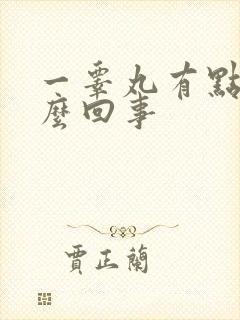 一睾丸有點
麼回事
賈正蘭